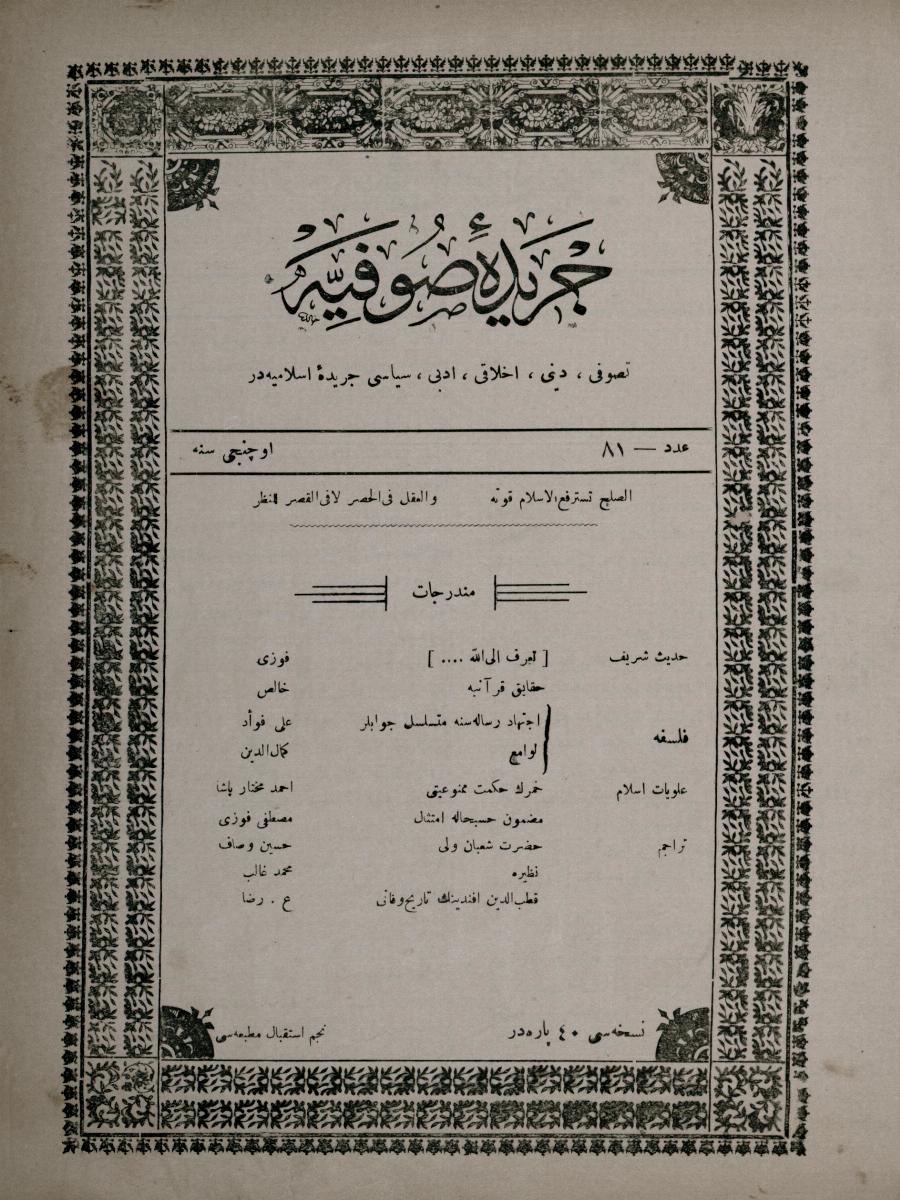 جريدۀ صوفيه
تصوفی ، دينی ، اخلاقی ، ادبی ، سياسی جريدۀ اسلاميه‌در
عدد — ٨١ اوچنجی سنه
الصلح تسترفع الاسلام قوته والعقل فی الحصر لا فی القصر للنظر
مندرجات
حديث شريف [ تعرف الی الله .... ] فوزی
حقايق قرآنيه خالص
فلسفه
اجتهاد رساله‌سنه متسلسل جوابلر علی فوأد
لوامع كمال‌الدين
علويات اسلام خمرك حكمت ممنوعيتی احمد مختار پاشا
مضمون حسبحاله امتثال مصطفی فوزی
تراجم حضرت شعبان ولی حسين وصاف
نظيره محمد غالب
قطب‌الدين افندينك تاريخ وفاتی ع . رضا
نسخه‌سی ٤٠ پاره‌در نجم استقبال مطبعه‌سی